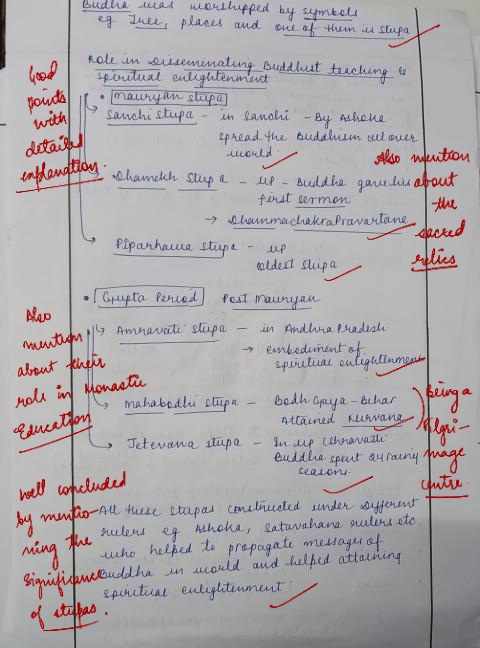 Budha was worshipped by symbols
eg Tree, places and one of them is stupa
Role in Disseminating Buddhist teaching &
spiritual enlightenment
Good
points
with
detailed
explanation.
• Mauryan stupa
Sanchi Stupa - in Sanchi - By Ashoka
spread the Buddhism all over
world.
Also mention
about
the
sacred
relics
Dhamekh Stupa - UP - Buddha gave his
first sermon
→ Dhammachakra Pravartana
Piparhawa Stupa - UP
oldest stupa
• Gupta Period Post Mauryan
Also
mention
about their
role in Monastic
Education
Amravati Stupa - in Andhra Pradesh
→ embodiment of
spiritual enlightenment
Mahabodhi stupa - Bodh Gaya - Bihar
Attained Nirvana
Being a
Pilgri-
mage
centre.
Jetevana stupa - In UP (Shravasti)
Buddha spent 24 rainy
seasons.
Well concluded
by mentio-
ning the
significance
of stupas.
All these stupas constructed under different
rulers eg Ashoka, Satavahana rulers etc
who helped to propagate messages of
Buddha in world and helped attaining
spiritual enlightenment.